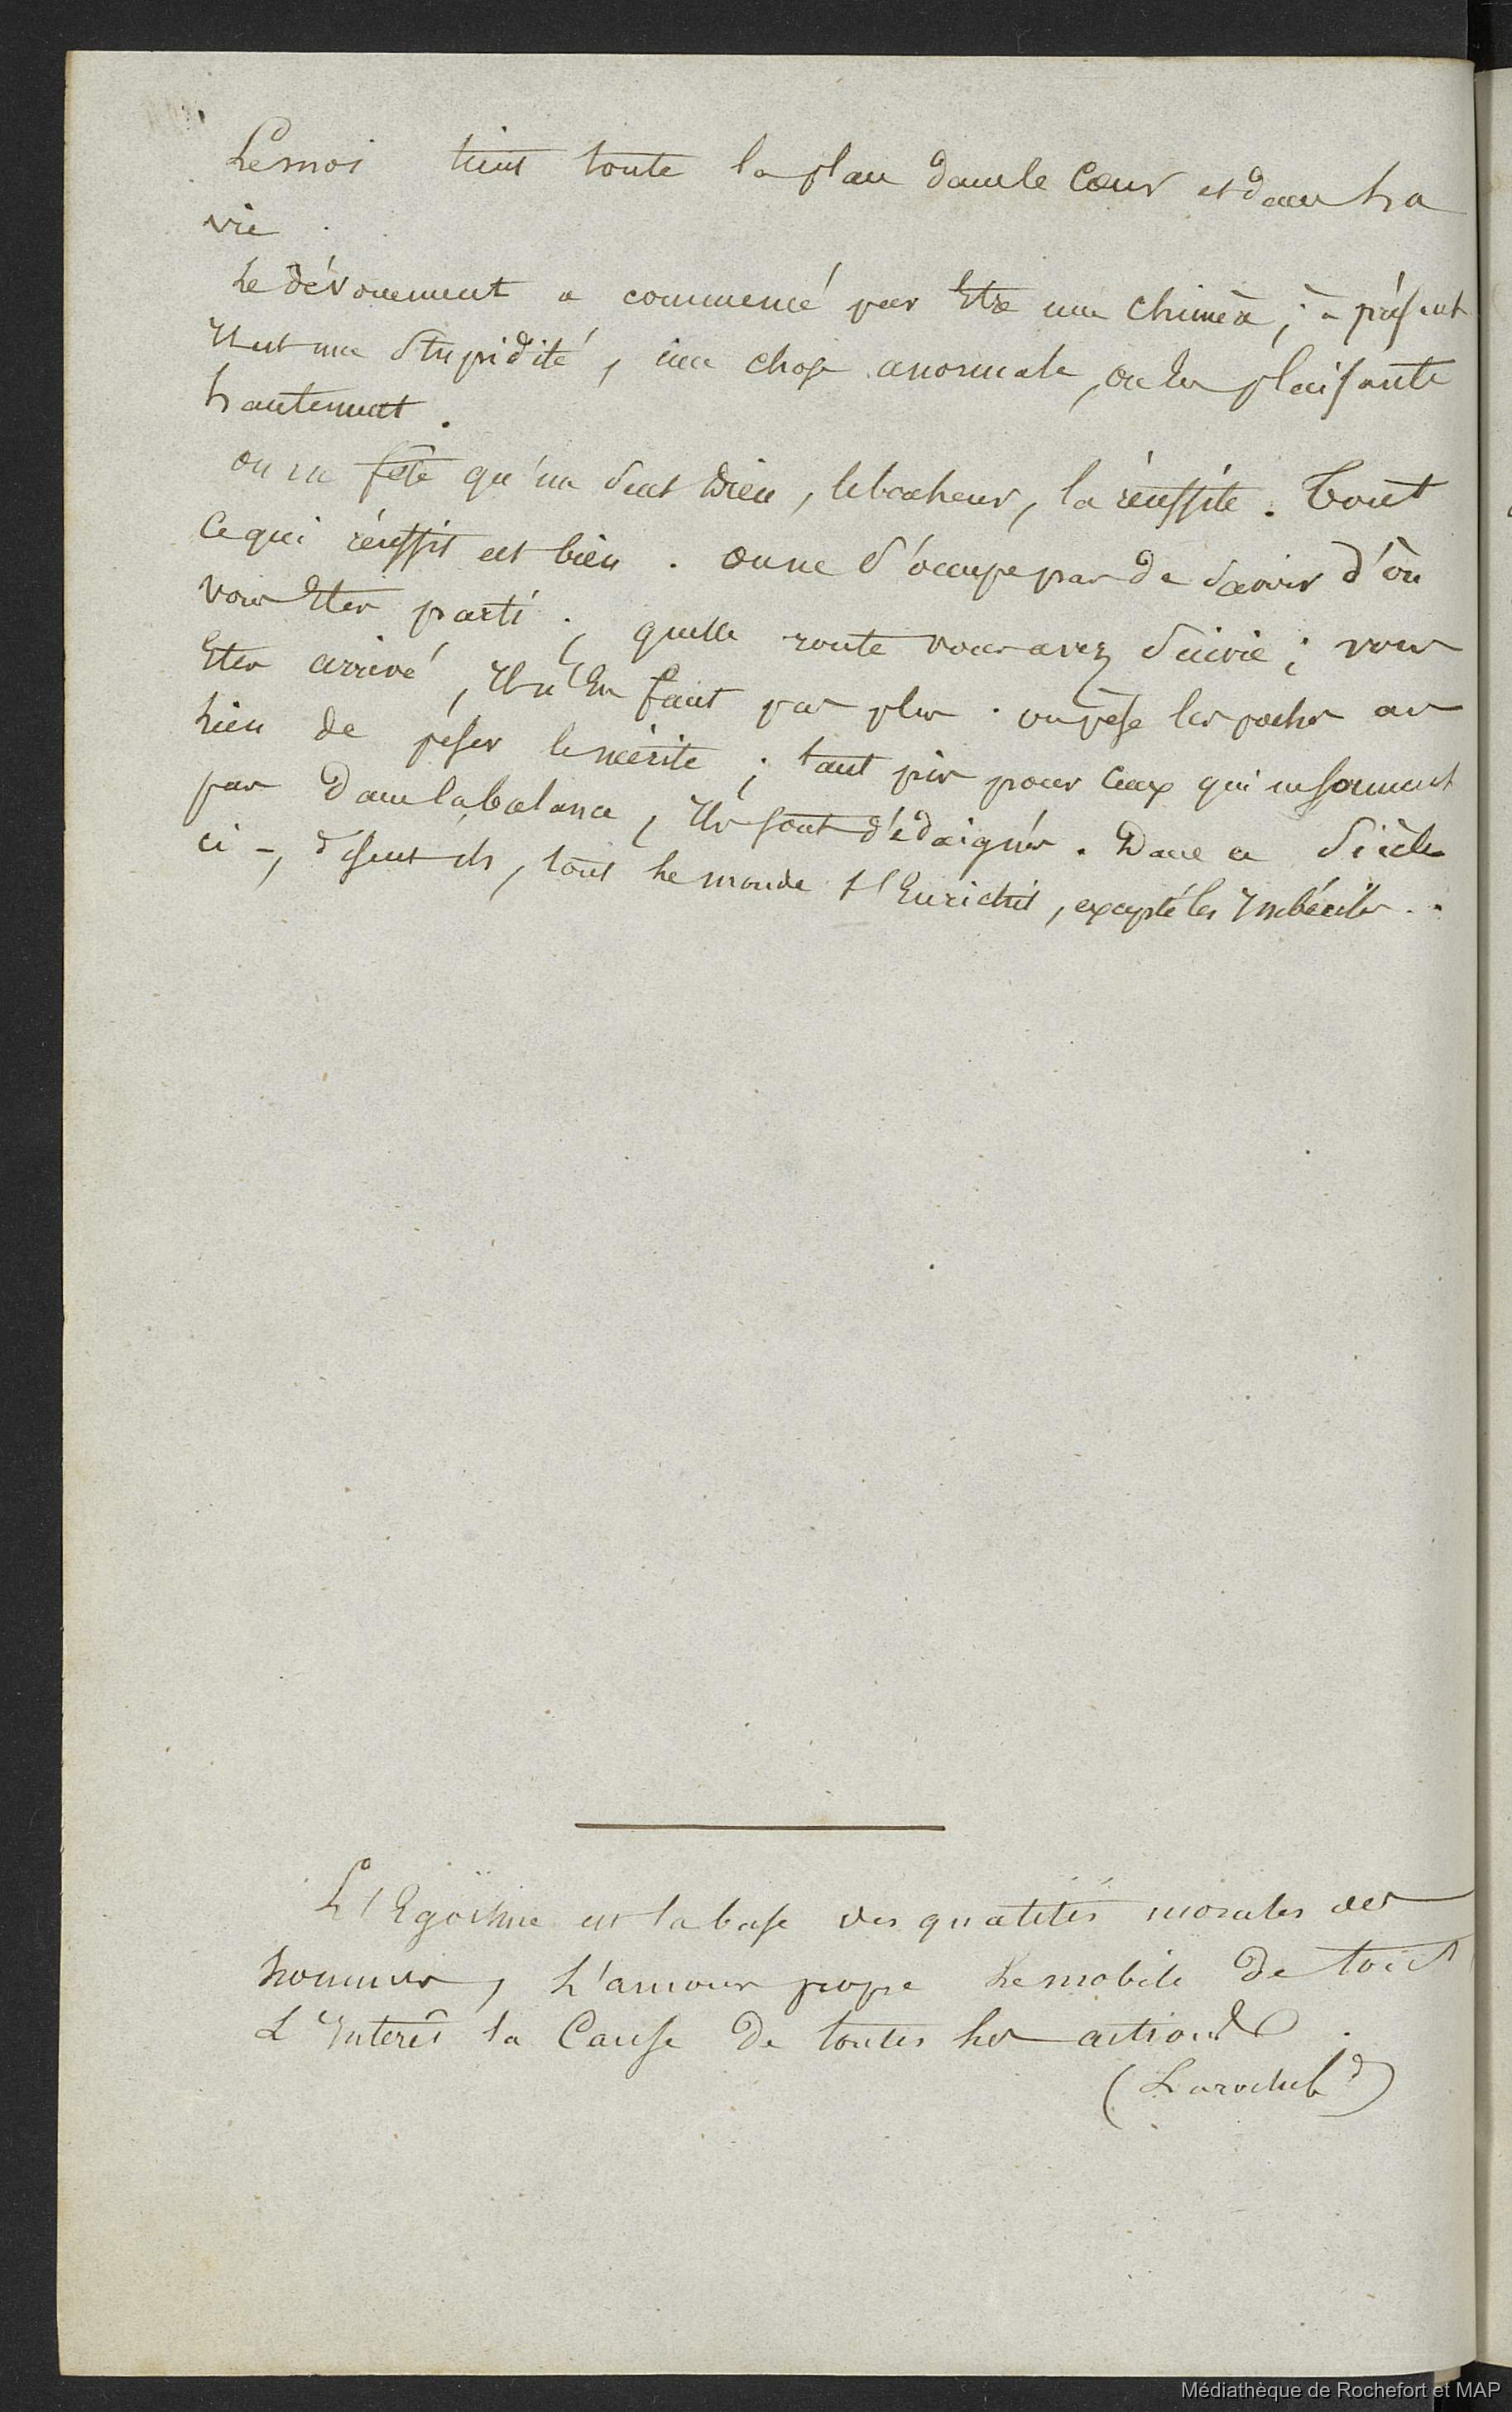 Le moi tient toute la place dans le Coeur et dans La
vie.
Le dévouement a commencé par Etre une Chimère ; à présent
Il est une Stupidité, une chose anormale, on la plaisante
hautement.
on ne fête qu'un seul Dieu, le bonheur, la réussite. Tout
Ce qui réussit est bien. on ne s'occupe pas de Savoir d'où
vous Etes parti, quelle route vous avez Suivie ; vous
Etes arrivé, Il n'En faut pas plus. on pèse les poches au
Lieu de péser le mérite ; tant pis pour Ceux qui ne sonnent
pas Dans la balance, Ils sont dédaignés. Dans ce Siècle
ci -, disent ils, tout Le monde s'Enrichit, excepté les Imbéciles..
L'Egoïsme est la base des qualités morales des
hommes, L'amour propre Le mobile De tout
L'Interêt la Cause De toutes Les actions.
(Larochefd)
Médiathèque de Rochefort et MAP